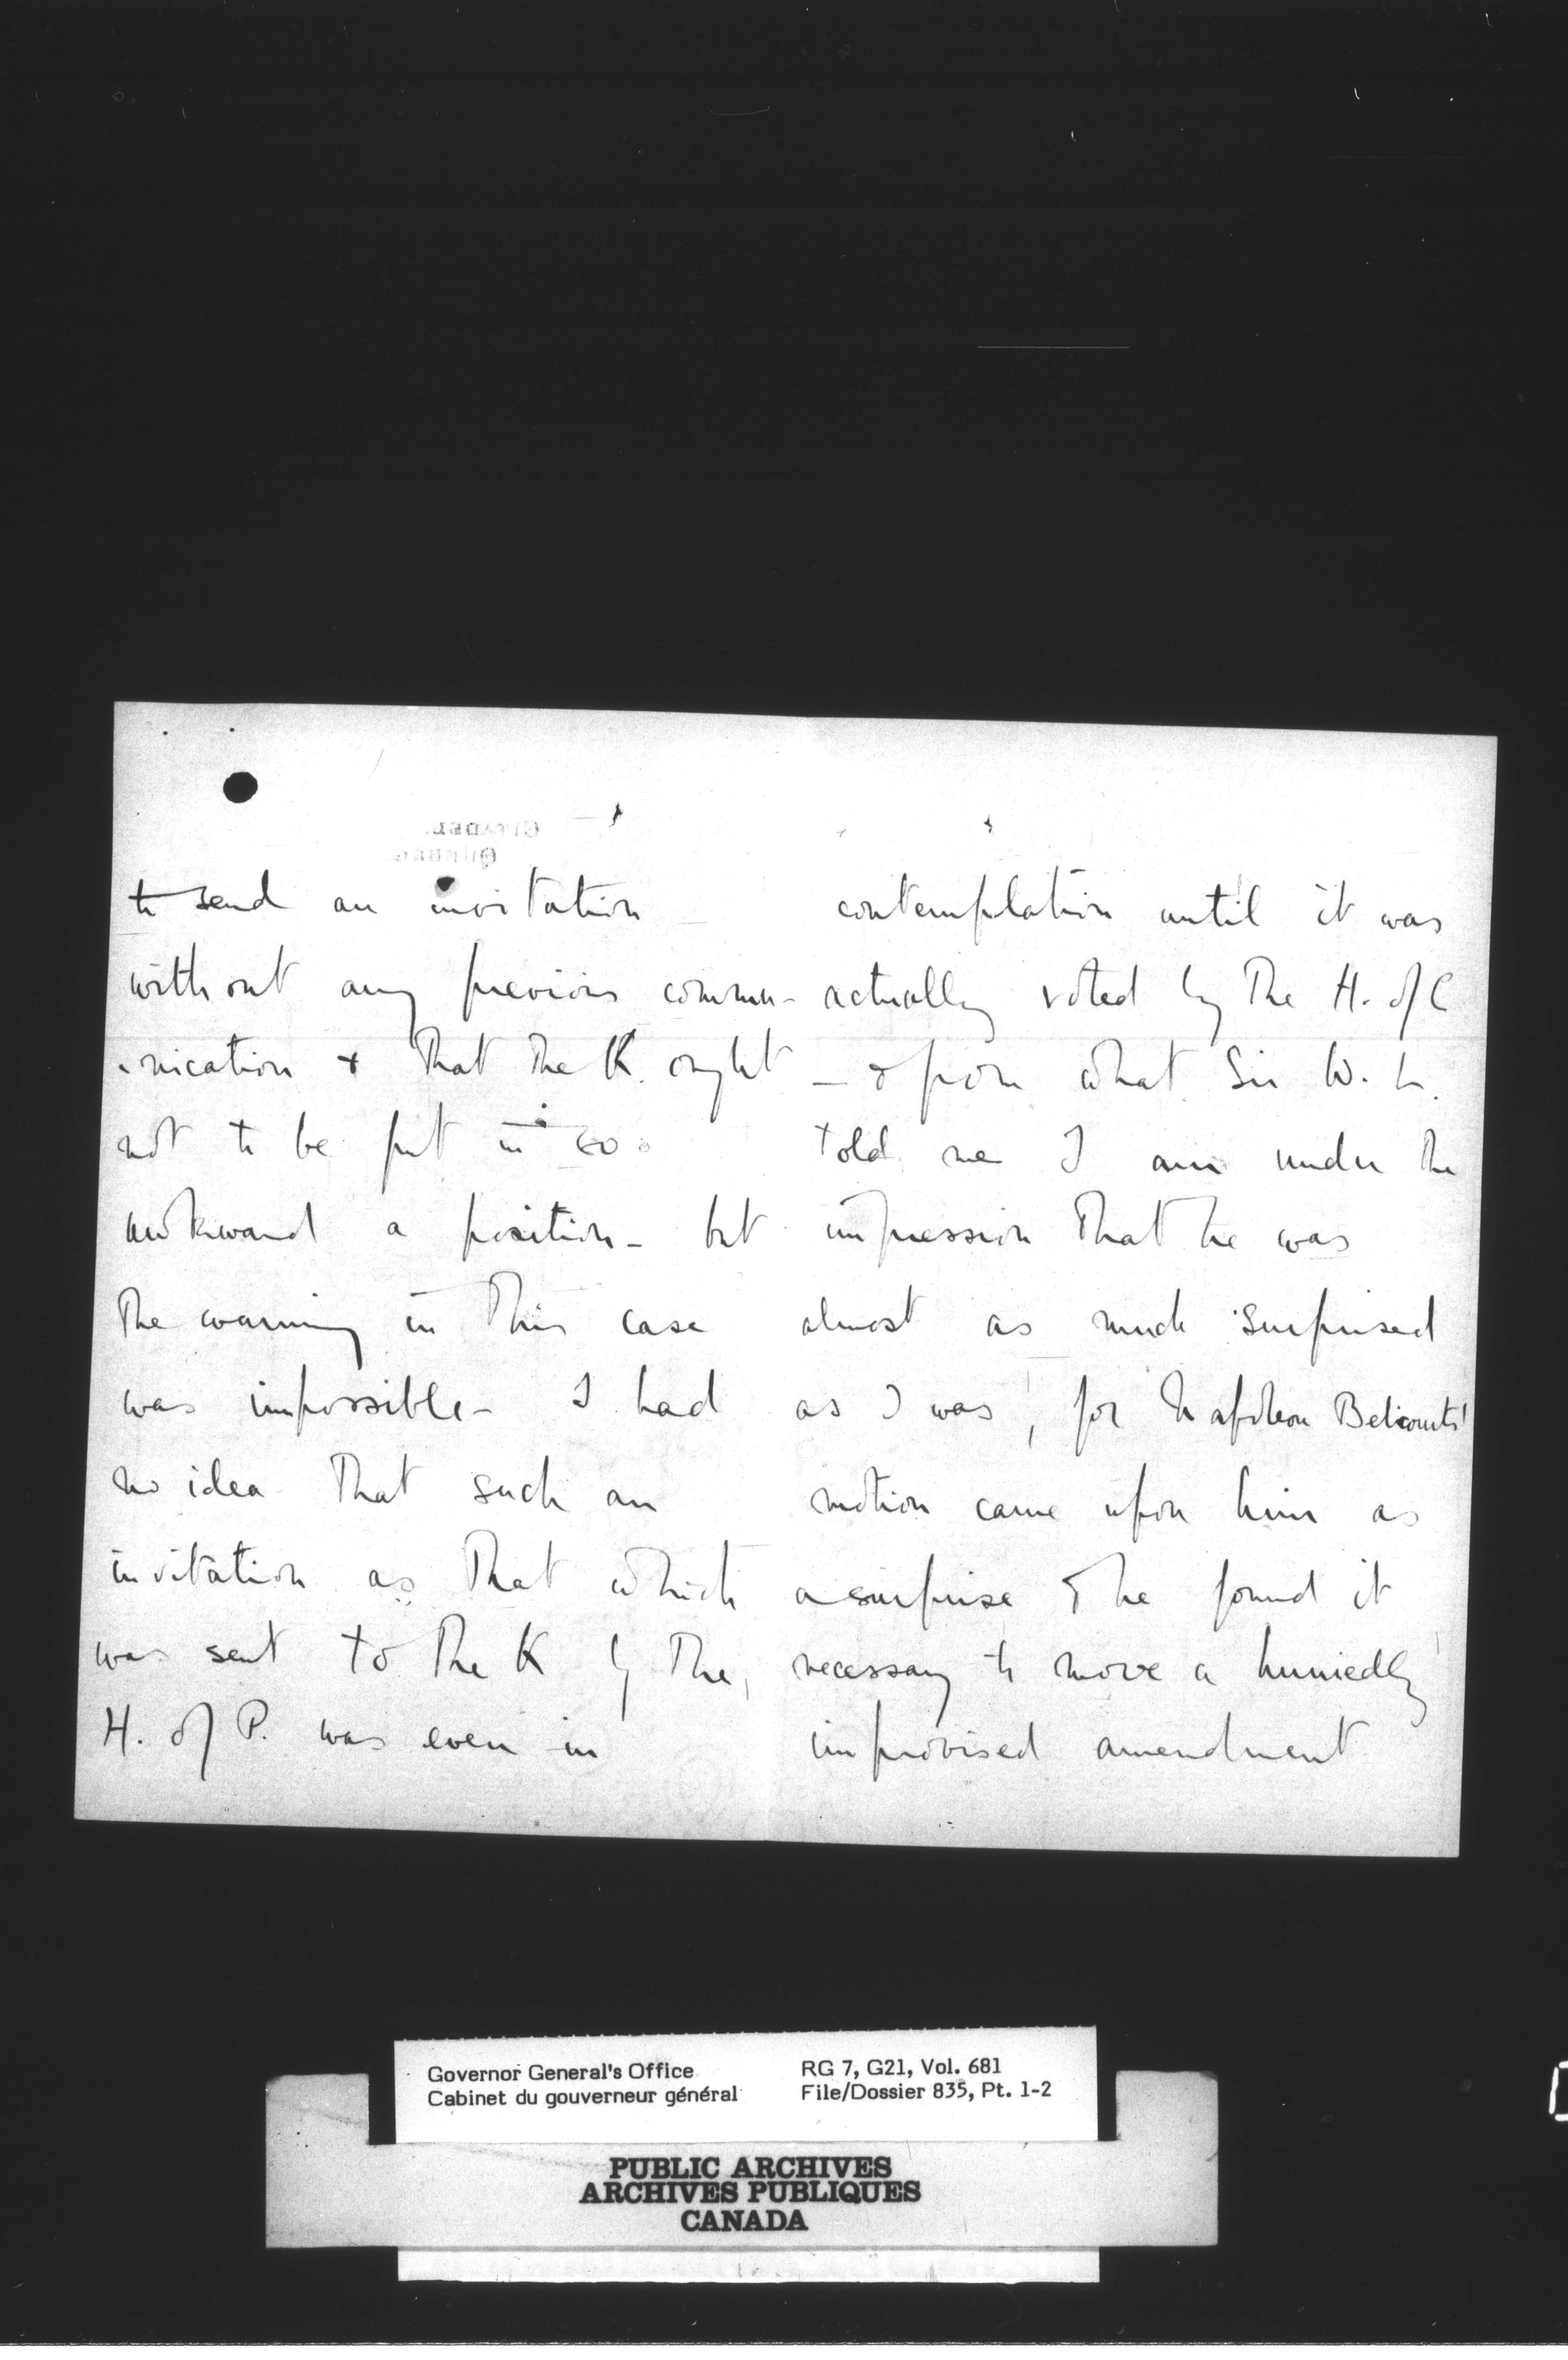 to send an invitation
without any previous commu-
-nication & that the K. ought
not to be put in so
awkward a position - but
the warning in this case
was impossible - I had
no idea that such an
invitation as that which
was sent to the K by the
H. of P. was even in
contemplation until it was
actually voted by the H. of C
- & from what Sir W. L.
told me I am under the
impression that he was
almost as much surprised
as I was, for Napoleon Belcourts'
motion came upon him as
a surprise & he found it
necessary to move a hurriedly
improvised amendment
CITADEL
QUEBEC
Governor General's Office
Cabinet du gouverneur général
RG 7, G21, Vol. 681
File/Dossier 835, Pt. 1-2
PUBLIC ARCHIVES
ARCHIVES PUBLIQUES
CANADA